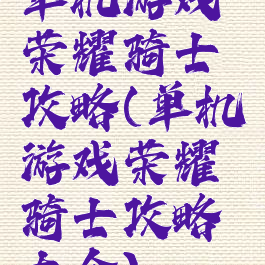 单机游戏
荣耀骑士
攻略(单机
游戏荣耀
骑士攻略
大全)